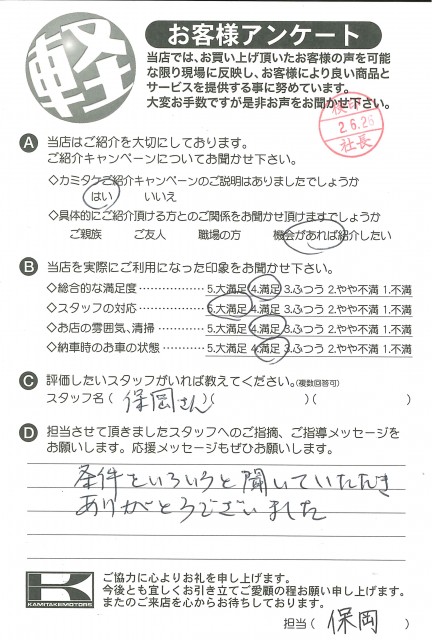 軽
お客様アンケート
当店では、お買い上げ頂いたお客様の声を可能
な限り現場に反映し、お客様により良い商品と
サービスを提供する事に努めています。
大変お手数ですが是非お声をお聞かせ下さい。
2.6.26
社長
A 当店はご紹介を大切にしております。
ご紹介キャンペーンについてお聞かせ下さい。
◇カミタケご紹介キャンペーンのご説明はありましたでしょうか
はい いいえ
◇具体的にご紹介頂ける方とのご関係をお聞かせ頂けますでしょうか
ご親族 ご友人 職場の方 機会があれば紹介したい
B 当店を実際にご利用になった印象をお聞かせ下さい。
◇総合的な満足度 ……………… 5.大満足 4.満足 3.ふつう 2.やや不満 1.不満
◇スタッフの対応 ……………… 5.大満足 4.満足 3.ふつう 2.やや不満 1.不満
◇お店の雰囲気、清掃 ………… 5.大満足 4.満足 3.ふつう 2.やや不満 1.不満
◇納車時のお車の状態 ………… 5.大満足 4.満足 3.ふつう 2.やや不満 1.不満
C 評価したいスタッフがいれば教えてください。(複数回答可)
スタッフ名( 保岡さん )( )( )
D 担当させて頂きましたスタッフへのご指摘、ご指導メッセージを
お願いします。応援メッセージもぜひお願いします。
条件をいろいろと聞いていただき
ありがとうございました
K
KAMITAKEMOTORS
ご協力に心よりお礼を申し上げます。
今後とも宜しくお引き立てご愛顧の程お願い申し上げます。
またのご来店を心からお待ちしております。
担当( 保岡 )